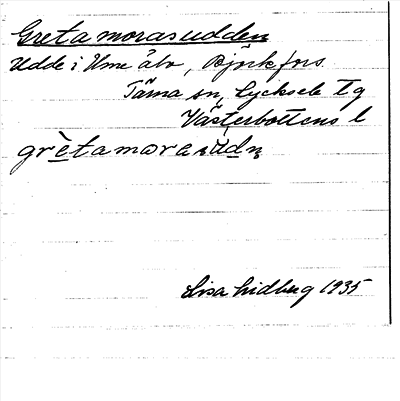 Gretamorasudden
Udde i Ume älv, Björkfors
Tärna sn, Lycksele tg
Västerbottens l
grètamorasùdn̥
Lisa Lidberg 1935